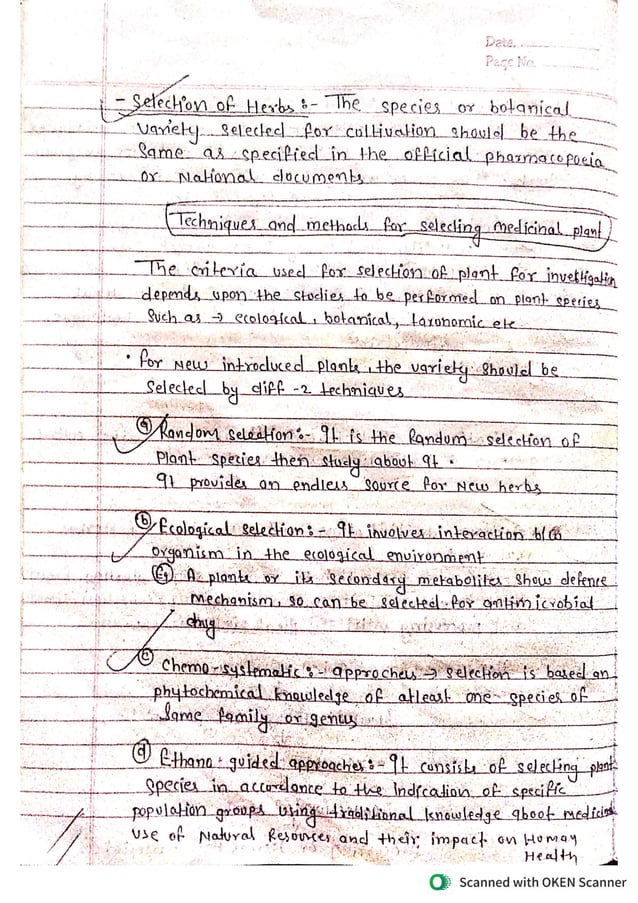 Date.
Page No.
- Selection of Herbs :- The species or botanical
variety selected for cultivation should be the
Same as specified in the official pharmacopoeia
or National documents
Techniques and methods for selecting medicinal plant
The criteria used for selection of plant for investigation
depends upon the studies to be performed on plant species
Such as → ecological, botanical, taxonomic etc
• for New introduced plants, the variety should be
Selected by diff-2 techniques
(a) Random selection :- It is the Random selection of
Plant species then study about It.
It provides an endless source for New herbs
(b) Ecological selection :- It involves interaction b/w
organism in the ecological environment
(Eg) A plants or its secondary metabolites show defence
Mechanism, so can be selected for antimicrobial
drug
(c) Chemo-systematic :- approches → selection is based on
phytochemical knowledge of atleast one species of
Same family or genus
(d) Ethano-guided approaches :- It consists of selecting plant
species in accordance to the Indication of specific
population groups using traditional knowledge about medicinal
use of Natural Resources and their impact on Human
Health
Scanned with OKEN Scanner